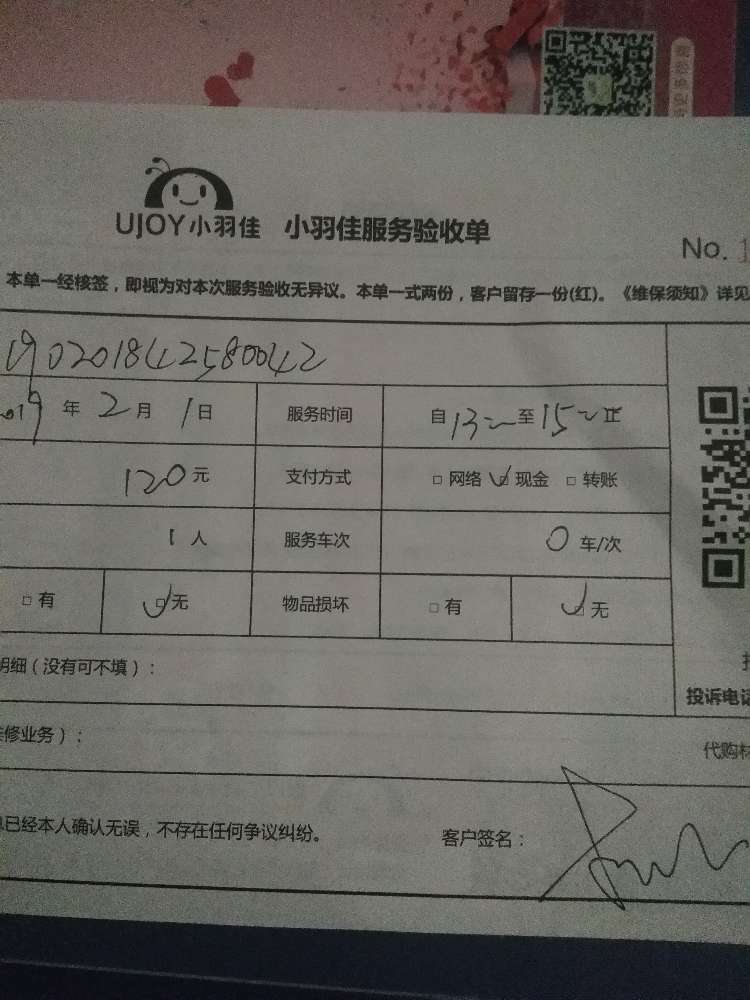 UJOY小羽佳 小羽佳服务验收单
No. 1
本单一经核签，即视为对本次服务验收无异议。本单一式两份，客户留存一份(红)。《维保须知》详见
190201842580042
2019 年 2 月 1 日 服务时间 自 13 至 15
120 元 支付方式 □ 网络 ☑ 现金 □ 转账
1 人 服务车次 0 车/次
□ 有 ☑ 无 物品损坏 □ 有 ☑ 无
明细（没有可不填）：
投诉电话
修业务）：
代购材
已经本人确认无误，不存在任何争议纠纷。 客户签名：